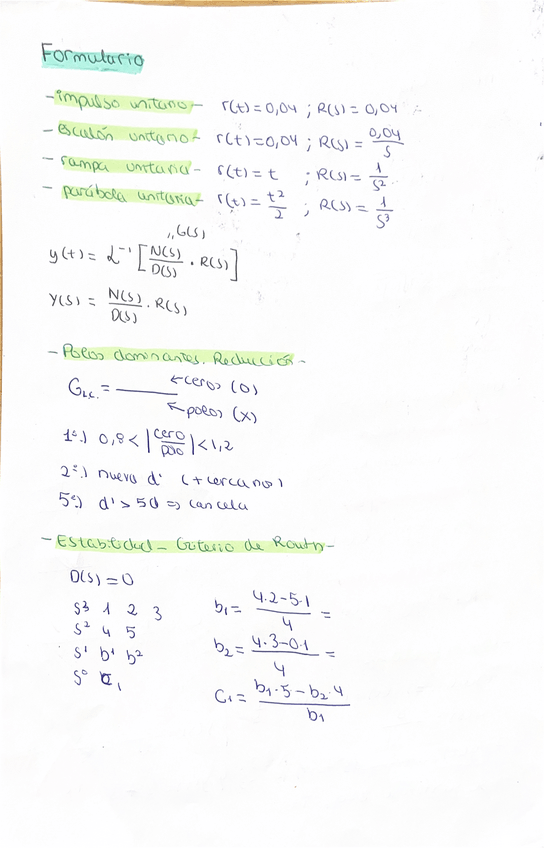 Formulario
- impulso unitario - r(t) = 0,04 ; R(s) = 0,04
- escalón unitario - r(t) = 0,04 ; R(s) = 0,04/s
- rampa unitaria - r(t) = t ; R(s) = 1/s²
- parábola unitaria - r(t) = t²/2 ; R(s) = 1/s³
,,G(s)
y(t) = L⁻¹ [N(s)/D(s) . R(s)]
Y(s) = N(s)/D(s) . R(s)
- Polos dominantes. Reducción -
G L.C. = ——— ← ceros (O)
← polos (x)
1º) 0,8 < |cero/polo| < 1,2
2º) nuevo d' (+ cercano)
5º) d' > 5d => cancela
- Estabilidad - Criterio de Routh -
D(s) = 0
s³ 1 2 3
s² 4 5
s¹ b¹ b²
s⁰ c₁
b₁ = (4·2-5·1)/4 =
b₂ = (4·3-0·1)/4 =
C₁ = (b₁·5 - b₂·4)/b₁